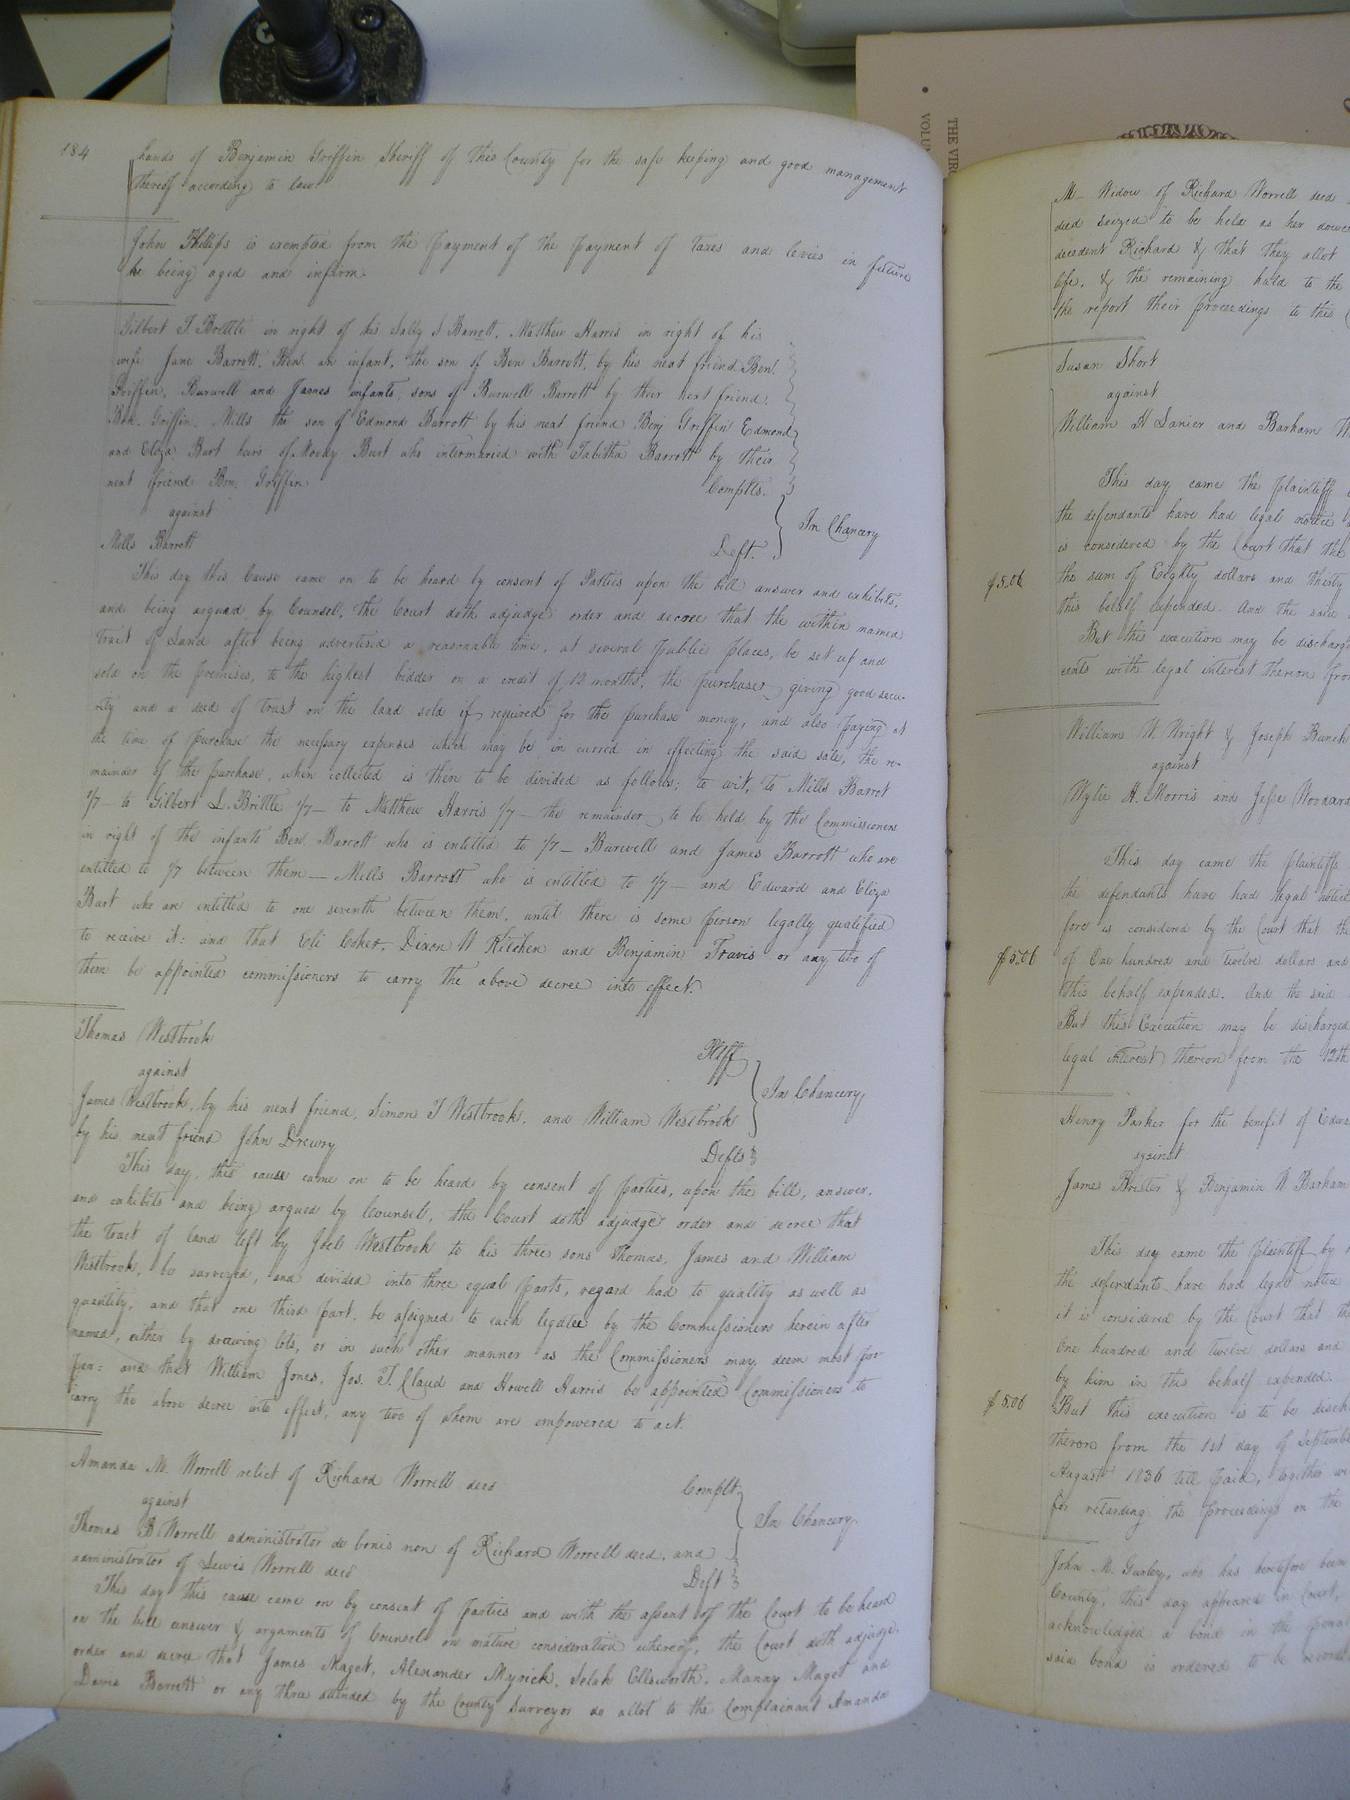 184
hands of Benjamin Griffin Sheriff of this County for the safe keeping and good management
thereof according to law.
John Phillips is exempted from the payment of the payment of taxes and levies in future
he being aged and infirm.
Gilbert T. Brittle in right of his Sally S Barrett, Matthew Harris in right of his
wife Jane Barrett. Ben. an infant, the son of Ben Barrett, by his next friend Ben.
Griffin, Burwell and James infants, sons of Burwell Barrett by their next friend.
Ben. Griffin. Mills the son of Edmond Barrott by his next friend Benj Griffin Edmond
and Eliza Burt heirs of Burt who intermaried with Tabitha Barrott by their
next friend Ben. Griffin Complts.
against
In Chancery
Mills Barrott Deft.
This day this Cause came on to be heard by consent of Parties upon the bill answer and exhibits,
and being argued by Counsel, the Court doth adjudge order and decree that the within named
tract of Land after being advertised a reasonable time, at several public places, be set up and
sold on the premises, to the highest bidder on a credit of 12 months, the purchaser giving good secu-
rity and a deed of trust on the land sold if required for the purchase money, and also paying at
the time of purchase the necessary expenses which may be in curred in effecting the said sale, the re-
mainder of the purchase, when collected is then to be divided as follows; to wit, to Mills Barrot
1/7 — to Gilbert L. Brittle 1/7 — to Matthew Harris 1/7 — the remainder to be held by the Commissioners
in right of the infants Ben. Barrott who is entitled to 1/7 — Burwell and James Barrott who are
entitled to 1/7 between them — Mills Barrott who is entitled to 1/7 — and Edward and Eliza
Burt who are entitled to one seventh between them, until there is some person legally qualified
to receive it: and that Eli Coker, Dixon W Kitchen and Benjamin Travis or any two of
them be appointed commissioners to carry the above decree into effect.
Thomas Westbrook Pltff
against
In Chancery
James Westbrook, by his next friend, Simons T Westbrook, and William Westbrook
by his next friend John Drewry Defts
This day, this cause came on to be heard by consent of parties, upon the bill, answer,
and exhibits and being argued by Counsell, the Court doth adjudge order and decree that
the tract of land left by Joel Westbrook to his three sons Thomas, James and William
Westbrook, be surveyed, and divided into three equal parts, regard had to quality as well as
quantity, and that one third part, be assigned to each legatee by the Commissioners herein after
named, either by drawing lots, or in such other manner as the Commissioners may deem most pro-
per: and that William Jones, Jos. T. Claud and Howell Harris be appointed Commissioners to
carry the above decree into effect, any two of whom are empowered to act.
Amanda M. Worrell relict of Richard Worrell decd Complt
against
In Chancery.
Thomas B Worrell administrator de bonis non of Richard Worrell decd. and
administrator of Lewis Worrell decd Deft
This day this cause came on by consent of parties and with the assent of the Court to be heard
on the bill answer & arguments of Counsel on mature consideration whereof, the Court doth adjudge
order and decree that James Maget, Alexander Myrick, Selah Ellsworth, Manny Maget and
Davis Barrett or any three attended by the County Surveyor do allot to the Complainant Amanda
THE VIR
VOLU
M. Widow of Richard Worrell decd
died seized to be held as her dower
decedent Richard & that they allot
life, & the remaining
the report their proceedings to this
Susan Short
against
William H Lanier and Barham
This day came the plaintiff
the defendants have had legal notice
is considered by the Court that the
$5.06
the sum of Eighty dollars and thirty
this behalf expended. And the said
But this execution may be discharg
cents with legal interest thereon from
William W. Wright & Joseph
against
Wylie H. Morris and Jesse Woodard
This day came the plaintiffs
the defendants have had legal notice
fore is considered by the Court that the
$5.06
of One hundred and twelve dollars and
this behalf expended. And the said
But this Execution may be discharged
legal interest thereon from the 12th
Henry Parker for the benefit of Edw
against
James & Benjamin W Barham
This day came the plaintiff by
the defendants have had legal notice
it is considered by the Court that the
One hundred and twelve dollars and
by him in this behalf expended.
$5.06
But this execution is to be disch
thereon from the 1st day of September
August 1836 till paid, together w
for retarding the proceedings on the
John M. Gurley, who has heretofore been
County, this day appeared in Court,
acknowledged a bond in the pena
said bond is ordered to be record